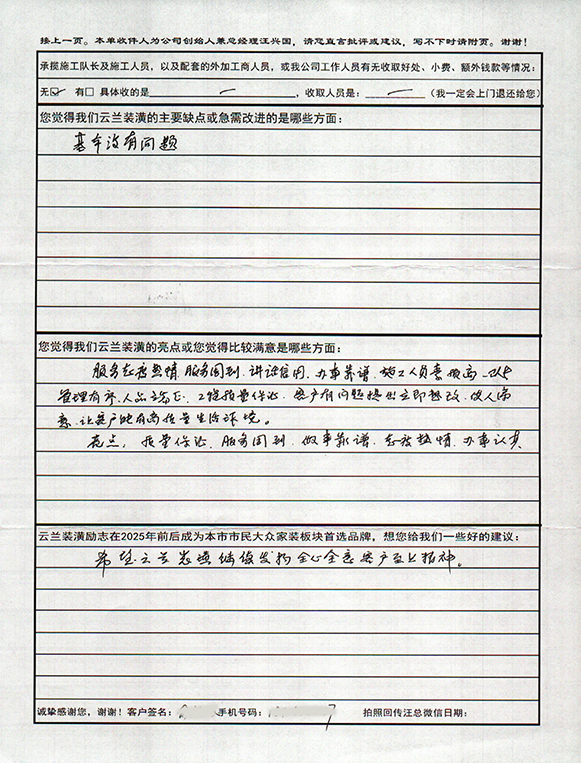 接上一页。本单收件人为公司创始人兼总经理汪兴国，请您直言批评或建议，写不下时请附页。谢谢！
承揽施工队长及施工人员，以及配套的外加工商人员，或我公司工作人员有无收取好处、小费、额外钱款等情况：
无☑ 有□ 具体收的是 ，收取人员是： （我一定会上门退还给您）
您觉得我们云兰装潢的主要缺点或急需改进的是哪些方面：
基本没有问题
您觉得我们云兰装潢的亮点或您觉得比较满意是哪些方面：
服务态度热情、服务周到、讲诚信用、办事靠谱、施工人员素质高、队伍
管理有序、人品端正、工程质量保证、客户有问题提出立即整改、使人满
意、让客户能有高质量生活环境。
亮点：质量保证、服务周到、做事靠谱、态度热情、办事认真
云兰装潢励志在2025年前后成为本市市民大众家装板块首选品牌，想您给我们一些好的建议：
希望云兰装潢继续发扬全心全意客户至上精神。
诚挚感谢您，谢谢！客户签名： 手机号码： 7 拍照回传汪总微信日期：